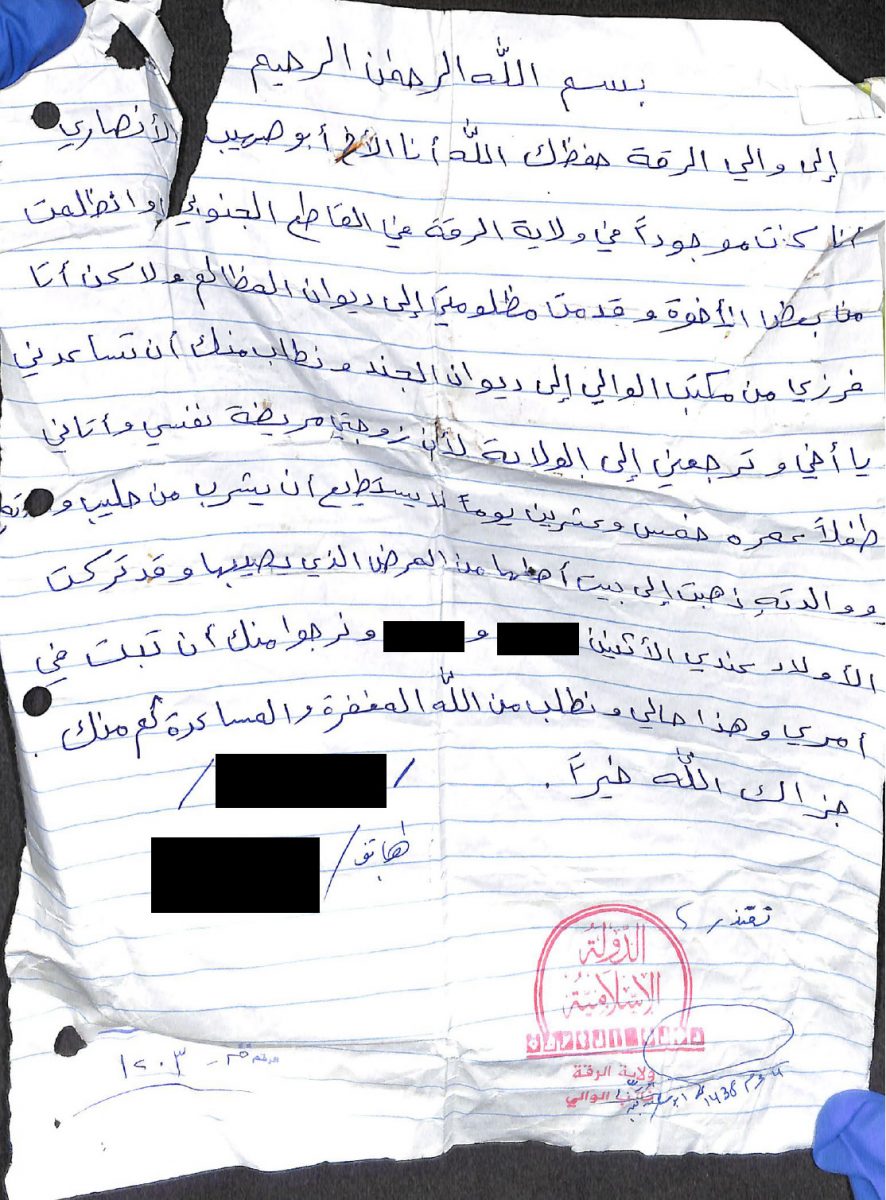 بسم الله الرحمن الرحيم
إلى والي الرقة حفظك الله أنا الأخ أبو صهيب الأنصاري
أنا كنت موجوداً في ولاية الرقة في القاطع الجنوبي وانظلمت
من بعض الأخوة وقدمت مظلوميتي إلى ديوان المظالم ولاكن أتا
فرزي من مكتب الوالي إلى ديوان الجند ونطلب منك أن تساعدني
يا أخي وترجعني إلى الولاية لأن زوجتي مريضة نفسي وأتاني
طفلاً عمره خمس وعشرين يوماً لا يستطيع أن يشرب من حليب
ووالدته ذهبت إلى بيت أهلها من المرض الذي يصيبها وقد تركت
الأولاد عندي الأثنين و ونرجوا منك أن تبت في
أمري وهذا حالي ونطلب من الله المغفرة والمساعدة ثم منك .
جزاك الله خيراً .
/ /
هاتف /
الدولة
الإسلامية
ولاية الرقة
الوالي
1438
الرقم
١٢٠٣